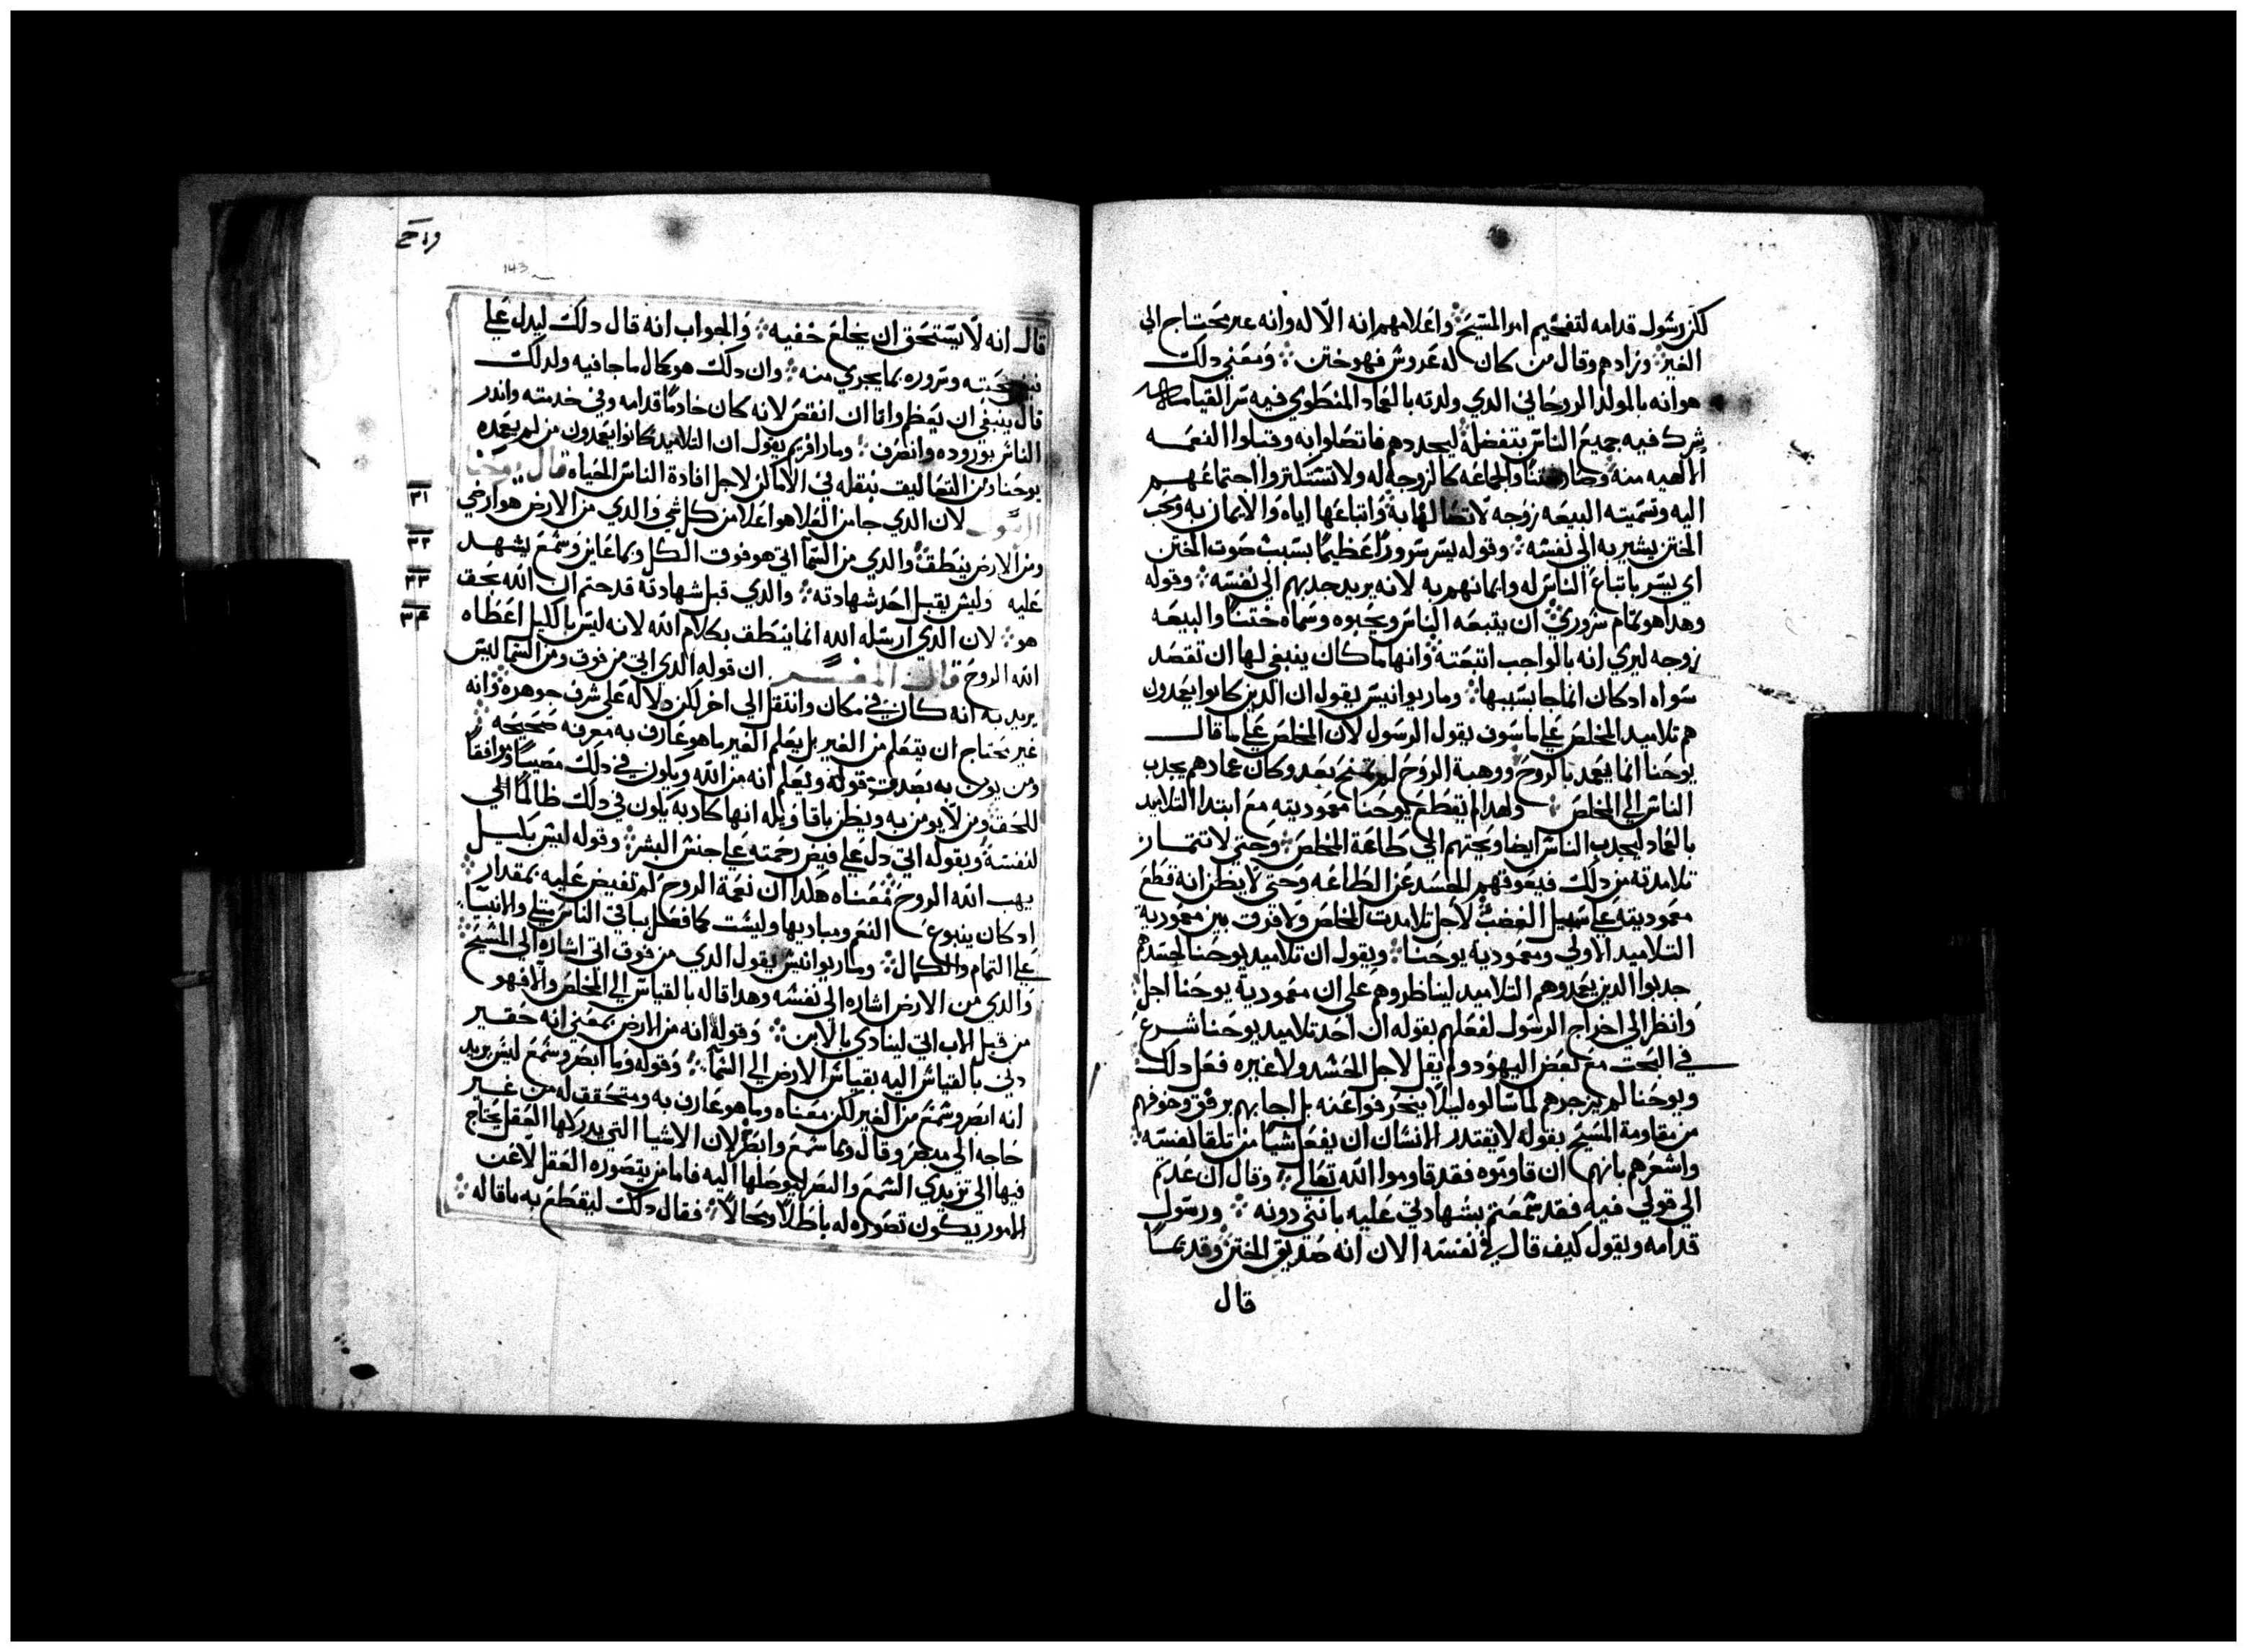 لكن رسول قدامه لتفخيم امر المسيح واعلامهم انه الاله وانه غير محتاج الي
الغير وزادهم وقال من كان له عروس فهو ختن ومعني دلك
هو انه بالمولد الروحاني الدي ولدته بالعماد المنطوي فيه سر القيامه
شرك فيه جميع الناس بتفضله ليجددهم فاتصلوا به وقبلوا النعمه
الالهيه منه وصار ختنا والجماعه كالزوجه له ولا تستنكروا اجتماعهم
اليه وتسميته البيعه زوجه لاتصالها به واتباعها اياه والايمان به ومحب
الختن يشير به الي نفسه وقوله يسر سرورا عظيما بسبب صوت الختن
اي يسر باتباع الناس له وايمانهم به لانه يريد جدبهم الي نفسه وقوله
وهدا هو تمام سروري ان يتبعه الناس ويحبوه وسماه ختنا والبيعه
زوجه ليري انه بالواجب اتبعته وانها ما كان ينبغي لها ان تقصد
سواه ادكان انما جا بسببها وماريوانيس يقول ان الدين كانوا يعمدون
هم تلاميد المخلص علي ما سوف يقول الرسول لان المخلص علي ما قال
يوحنا انما يعمد بالروح ووهبة الروح لم تمنح بعد وكان عمادهم يجدب
الناس الي المخلص ولهدا لم يقطع يوحنا معموديته مع ابتدا التلاميد
بالعماد ليجدب الناس ايضا ويحتهم الي طاعة المخلص وحتي لا تتمار
تلامدته من دلك فيعوقهم الحسد عن الطاعه وحتي لا يظن انه قطع
معموديته علي سبيل الغضب لاجل تلامدت المخلص ولا فرق بين معمودية
التلاميد الاولي ومعمودية يوحنا ويقول ان تلاميد يوحنا لحسدهم
جدبوا الدين يعمدوهم التلاميد ليناظروهم علي ان معمودية يوحنا اجل
وانظر الي اخراج الرسول لفعلهم بقوله ان احد تلاميد يوحنا شرع
في البحت مع بعض اليهود ولم يقل لاجل الحسد ولا غيره فعل دلك
ويوحنا لم يزجرهم لما سالوه ليلا ينحرفوا عنه بل اجابهم برفق وخوفهم
من مقاومة المسيح بقوله لا يقتدر الانسان ان يفعل شيا من تلقا نفسه
واشعرهم بانهم ان قاوموه فقد قاوموا الله تعالي وقال ان عدتم
الي قولي فيه فقد سمعتم بشهادتي عليه بانني دونه ورسول
قدامه ويقول كيف قال في نفسه الان انه صديق الختن وقديما
قال
143
قال انه لا يستحق ان يخلع خفيه والجواب انه قال دلك ليدل علي
محبته وسروره بما يجري منه وان دلك هو كمال ما جا فيه ولدلك
قال ينبغي ان يعظم واما ان انقص لانه كان خادما قدامه وفي خدمته واندر
الناس بوروده وانصرف ومار افريم يقول ان التلاميد كانوا يعمدون من لم يعمده
يوحنا ومن التعاليت بنقله في الاماكن لاجل افادة الناس الحياه قال يوحنا
الرسول لان الدي جا من العلا هو اعلا من كل شي والدي من الارض هو ارضي
٣١
ومن الارض ينطق والدي من السما اتي هو فوق الكل وبما عاين وسمع يشهد
٣٢
عليه وليس يقبل احد شهادته والدي قبل شهادته قد حتم ان الله بحق
٣٣
هو لان الدي ارسله الله انما ينطق بكلام الله لانه ليس بالكيل اعطاه
٣٤
الله الروح قال المفسر ان قوله الدي اتي من فوق ومن السما ليس
يريد به انه كان في مكان وانتقل الي اخر لكن دلاله علي شرف جوهره وانه
غير محتاج ان يتعلم من الغير بل يعلم الغير ما هو عارف به معرفه صحيحه
ومن يومن به يصدق قوله ويعلم انه من الله ويكون في دلك مصيبا وموافقا
للحق ومن لا يومن به ويظن باقاويله انها كادبه يكون في دلك ظالما الي
نفسه وبقوله اتي دل علي فيض رحمته علي جنس البشر وقوله ليس بكيل
يهب الله الروح معناه هكدا ان نعمة الروح لم تفيض عليه بمقدار
ادكان ينبوع النعم ومباديها وليست كما فعل بباقي الناس والانبيا
علي التمام والكمال وماريوانيس يقول الدي من فوق اتي اشاره الي المسيح
والدي من الارض اشاره الي نفسه وهدا قاله بالقياس الي المخلص والا فهو
من قبل الاب اتي لينادي بالابن وقوله انه من الارض بمعني انه حقير
دني بالقياس اليه بقياس الارض الي السما وقوله وما ابصر وسمع ليس يريد
انه ابصر وسمع من الغير لكن معناه وما هو عارف به ومتحقق له من غير
حاجه الي مبصر وقال وبما سمع وابصر لان الاشيا التي يدركها العقل يحتاج
فيها الي مودي السمع والبصر ليوصلها اليه فاما من يتصوره العقل لا عن
الامور يكون تصوره له باطلا ومحالا فقال دلك ليقطع به ما قاله